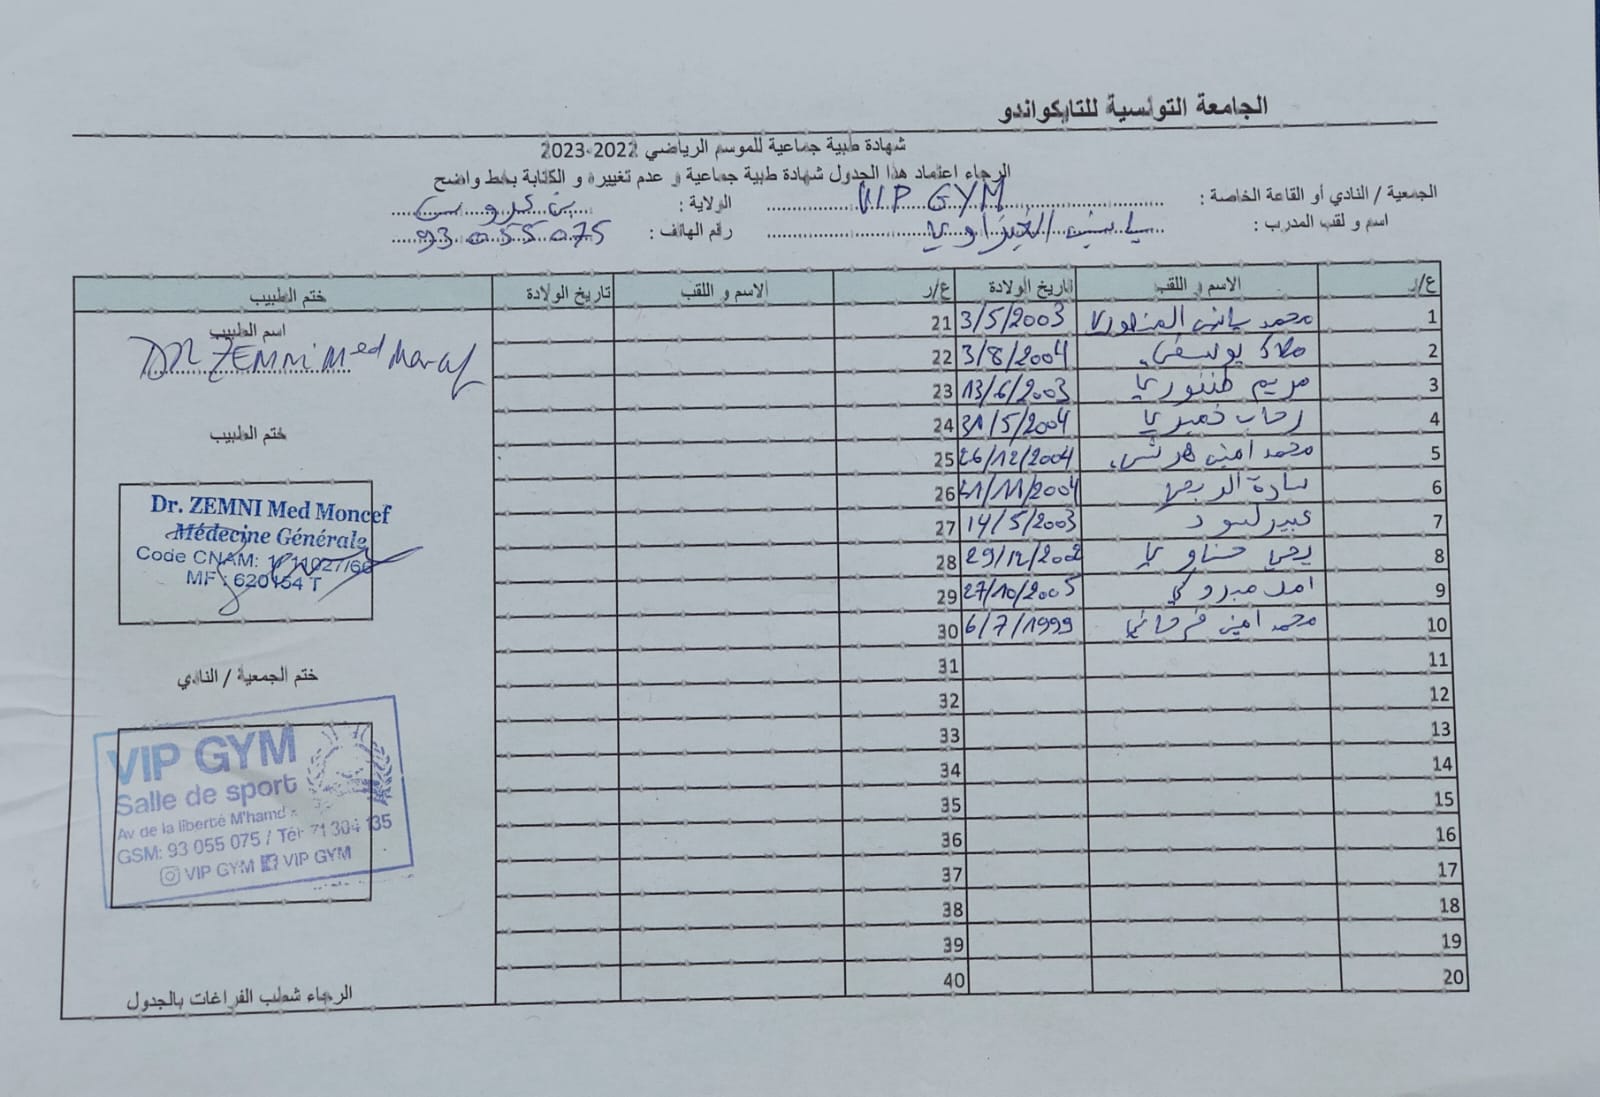 الجامعة التونسية للتايكواندو
شهادة طبية جماعية للموسم الرياضي 2022-2023
الرجاء اعتماد هذا الجدول شهادة طبية جماعية و عدم تغييره و الكتابة بخط واضح
الجمعية / النادي أو القاعة الخاصة : VIP GYM الولاية : بن عروس
اسم و لقب المدرب : ياسين رقم الهاتف : 93 055 075
ع/ر الاسم و اللقب تاريخ الولادة ع/ر الاسم و اللقب تاريخ الولادة ختم الطبيب
1 محمد ياسين 3/5/2003 21
2 ملاك يوسفي 3/8/2004 22
3 مريم 13/6/2003 23
4 رحاب خميري 31/5/2004 24
5 محمد امين 26/12/2004 25
6 سارة 26
7 عبير 14/5/2003 27
8 يحي حناوي 29/12/2002 28
9 امل مبروكي 27/10/2005 29
10 محمد امين فرحاني 6/7/1999 30
11 31
12 32
13 33
14 34
15 35
16 36
17 37
18 38
19 39
20 40
اسم الطبيب
DR ZEMNI Med
ختم الطبيب
Dr. ZEMNI Med Moncef
Médecine Générale
Code CNAM:
MF : 620154 T
ختم الجمعية / النادي
VIP GYM
Salle de sport
Av de la liberté M'hamdia
GSM: 93 055 075 / Tél: 71 304 135
VIP GYM VIP GYM
الرجاء شطب الفراغات بالجدول